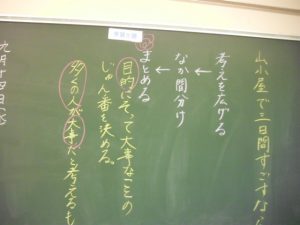 山小屋で三日間すごすなら
考えを広げる
↓
なか間分け
↓
まとめる
目的にそって大事なことの
じゅん番を決める。
多くの人が大事だと考えるも
九月十四日(火)